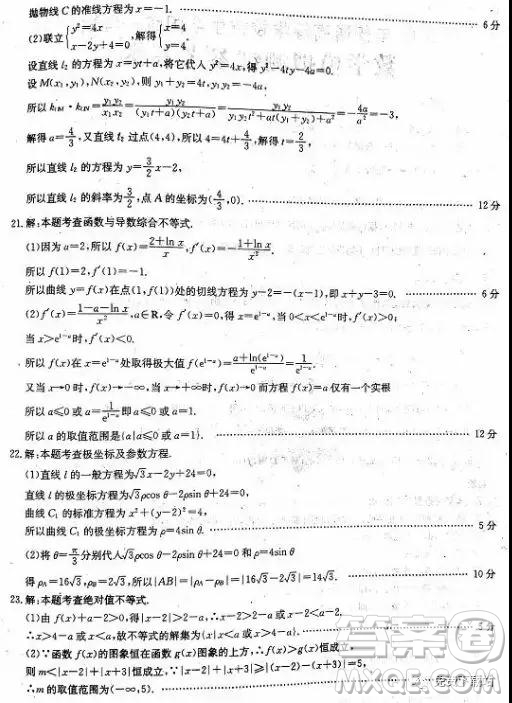 抛物线 C 的准线方程为 x=-1. …… 6分
(2)联立{y²=4x, x-2y+4=0, 解得{x=4, y=4.
设直线 l₂ 的方程为 x=ty+a, 将它代入 y²=4x, 得 y²-4ty-4a=0.
设 M(x₁,y₁), N(x₂,y₂), 则 y₁+y₂=4t, y₁y₂=-4a,
所以 k_OM·k_ON=y₁y₂/x₁x₂=y₁y₂/((y₁t+a)(y₂t+a))=y₁y₂/(y₁y₂t²+at(y₁+y₂)+a²)=-4a/a²=-3,
解得 a=4/3, 又直线 l₂ 过点(4,4), 所以 4=4t+4/3, 解得 t=2/3,
所以直线 l₂ 的方程为 y=3/2x-2,
所以直线 l₂ 的斜率为3/2, 点 A 的坐标为(4/3,0). …… 12分
21.解:本题考查函数与导数综合不等式.
(1)因为 a=2, 所以 f(x)=(2+ln x)/x, f′(x)=-(1+ln x)/x².
所以 f(1)=2, f′(1)=-1.
所以曲线 y=f(x)在点(1,f(1))处的切线方程为 y-2=-(x-1), 即 x+y-3=0. …… 6分
(2)f′(x)=(1-a-ln x)/x², a∈R, 令 f′(x)=0, 得 x=e^(1-a), 当 0<x<e^(1-a)时, f′(x)>0;
当 x>e^(1-a)时, f′(x)<0.
所以 f(x)在 x=e^(1-a)处取得极大值 f(e^(1-a))=(a+ln(e^(1-a)))/e^(1-a)=1/e^(1-a).
又当 x→0 时, f(x)→-∞, 当 x→+∞时, f(x)→0 而方程 f(x)=a 仅有一个实根
所以 a≤0 或 a=1/e^(1-a) 即 a≤0 或 a=1.
所以 a 的取值范围是{a|a≤0 或 a=1}. …… 12分
22.解:本题考查极坐标及参数方程.
(1)直线 l 的一般方程为√3x-2y+24=0,
直线 l 的极坐标方程为√3ρcos θ-2ρsin θ+24=0,
曲线 C₁ 的标准方程为 x²+(y-2)²=4,
所以曲线 C₁ 的极坐标方程为 ρ=4sin θ. …… 5分
(2)将 θ=π/3 分别代入√3ρcos θ-2ρsin θ+24=0 和 ρ=4sin θ,
得 ρ_A=16√3, ρ_B=2√3, 所以|AB|=|ρ_A-ρ_B|=|16√3-2√3|=14√3. …… 10分
23.解:本题考查绝对值不等式.
(1)由 f(x)+a-2>0, 得|x-2|>2-a, ∴x-2>2-a 或 x-2<a-2,
∴x>4-a 或 x<a, 故不等式的解集为{x|x<a 或 x>4-a}. …… 5分
(2)∵函数 f(x)的图象恒在函数 g(x)图象的上方, ∴f(x)>g(x)恒成立,
则 m<|x-2|+|x+3|恒成立, ∵|x-2|+|x+3|≥|(x-2)-(x+3)|=5,
∴m 的取值范围为(-∞,5).
答案圈